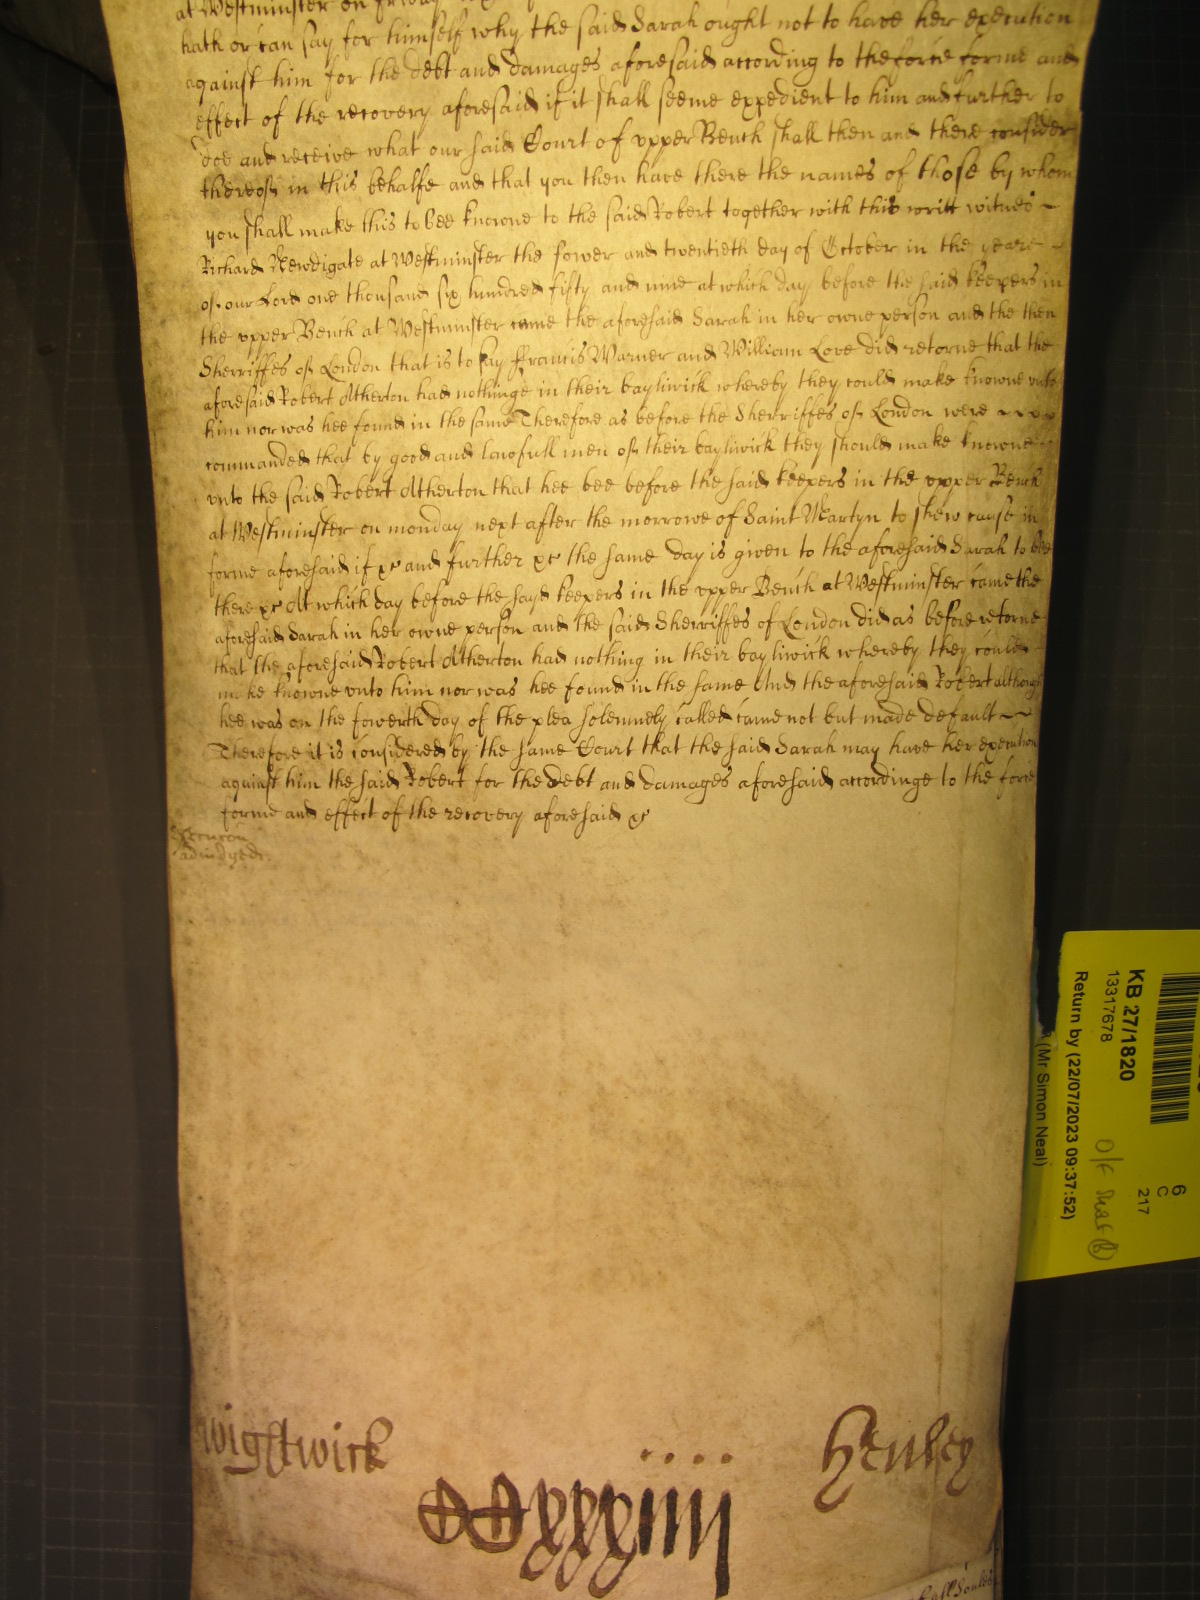 at Westminster on Friday
hath or can say for himself why the said Sarah ought not to have her execution
against him for the debt and damages aforesaid according to the force forme and
effect of the recovery aforesaid if it shall seeme expedient to him and further to
doe and receive what our said Court of upper Bench shall then and there consider
thereof in this behalfe and that you then have there the names of those by whom
you shall make this to bee knowne to the said Robert together with this writt witnes
Richard Newdigate at Westminster the fower and twentieth day of October in the yeare
of our Lord one thousand six hundred fifty and nine at which day before the said keepers in
the upper Bench at Westminster came the aforesaid Sarah in her owne person and the then
Sherriffes of London that is to say Francis Warner and William Love did retorne that the
aforesaid Robert Atherton had nothinge in their bayliwick whereby they could make knowne unto
him nor was hee found in the same Therefore as before the Sherriffes of London were
commanded that by good and lawfull men of their bayliwick they should make knowne
unto the said Robert Atherton that hee bee before the said keepers in the upper Bench
at Westminster on monday next after the morrowe of Saint Martyn to shew cause in
forme aforesaid if &c and further &c the same day is given to the aforesaid Sarah to bee
there &c At which day before the sayd keepers in the upper Bench at Westminster came the
aforesaid Sarah in her owne person and the said Sherriffes of London did as before retorne
that the aforesaid Robert Atherton had nothing in their bayliwick whereby they could
make knowne unto him nor was hee found in the same And the aforesaid Robert although
hee was on the fowerth day of the plea solemnely called came not but made default
Therefore it is considered by the same Court that the said Sarah may have her execution
against him the said Robert for the debt and damages aforesaid accordinge to the force
forme and effect of the recovery aforesaid &c
Wightwick
Henley
xxxiiii
KB 27/1820
13317678
Return by (22/07/2023 09:37:52)
(Mr Simon Neal)
6
C
217